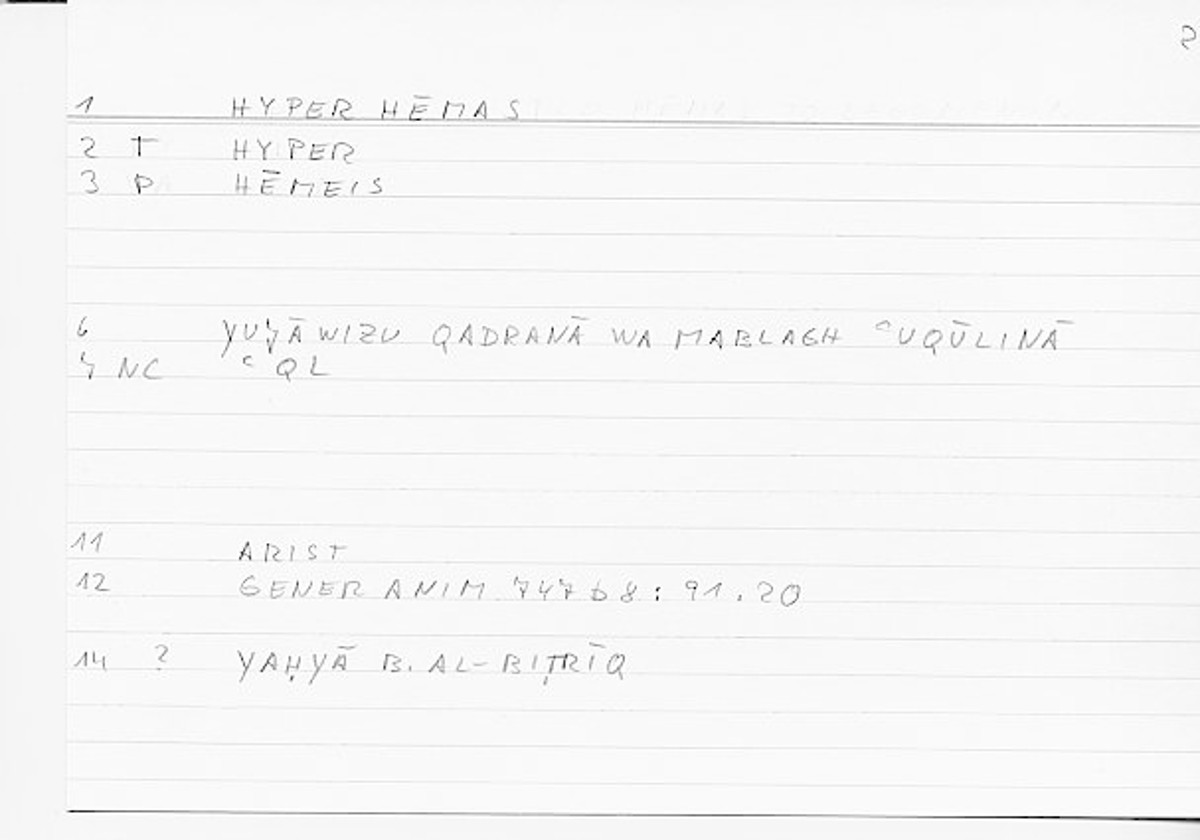 2
1 HYPER HĒMAS
2 T HYPER
3 P HĒMEIS
6 YUǦĀWIZU QADRANĀ WA MABLAGH ʿUQŪLINĀ
7 NC ʿQL
11 ARIST
12 GENER ANIM 747 b 8 : 91.20
14 ? YAḤYĀ B. AL-BIṬRĪQ